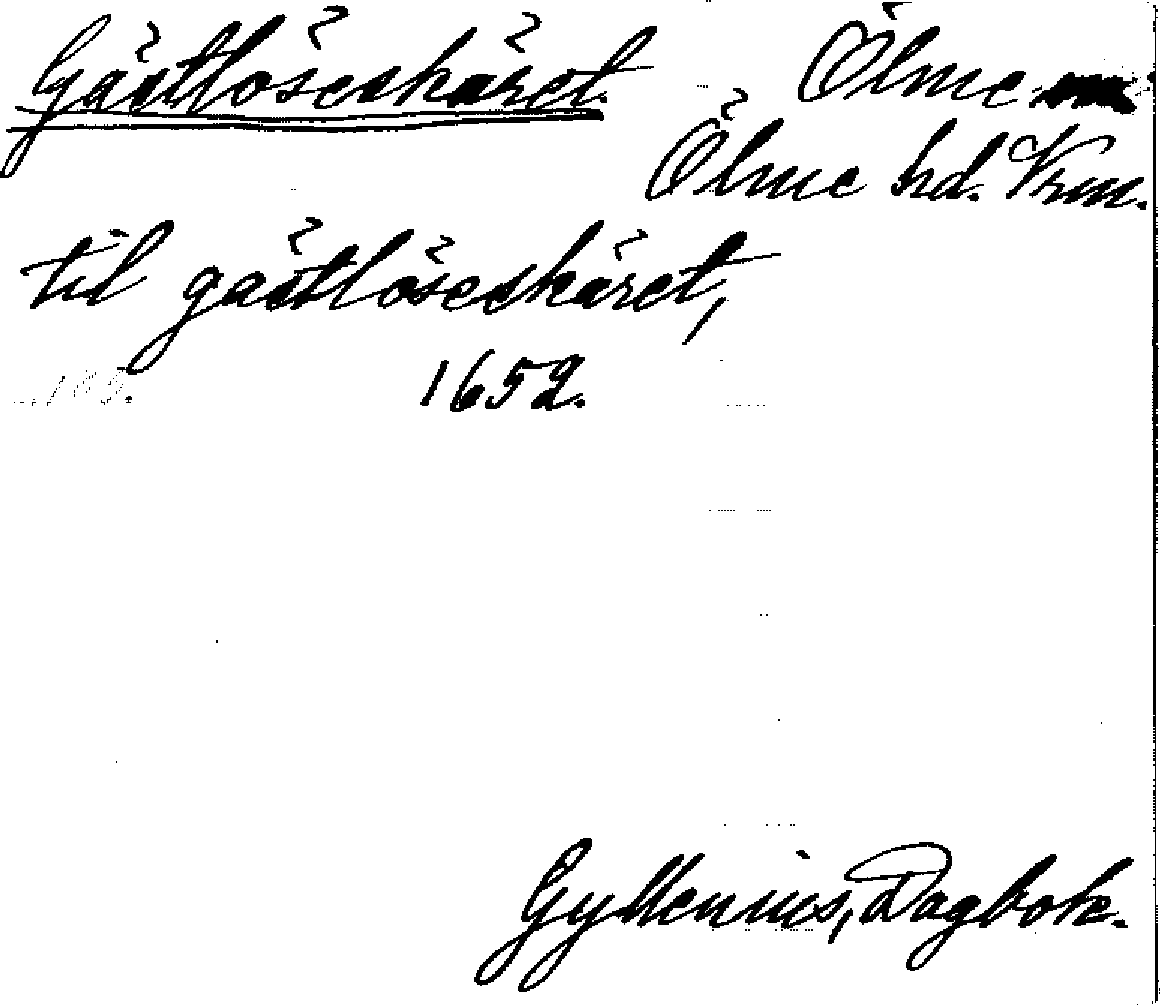 Gästlöseskäret. Ölme
Ölme hd. Vrm.
til gästlöseskäret,
1652.
Gyllenius, Dagbok.